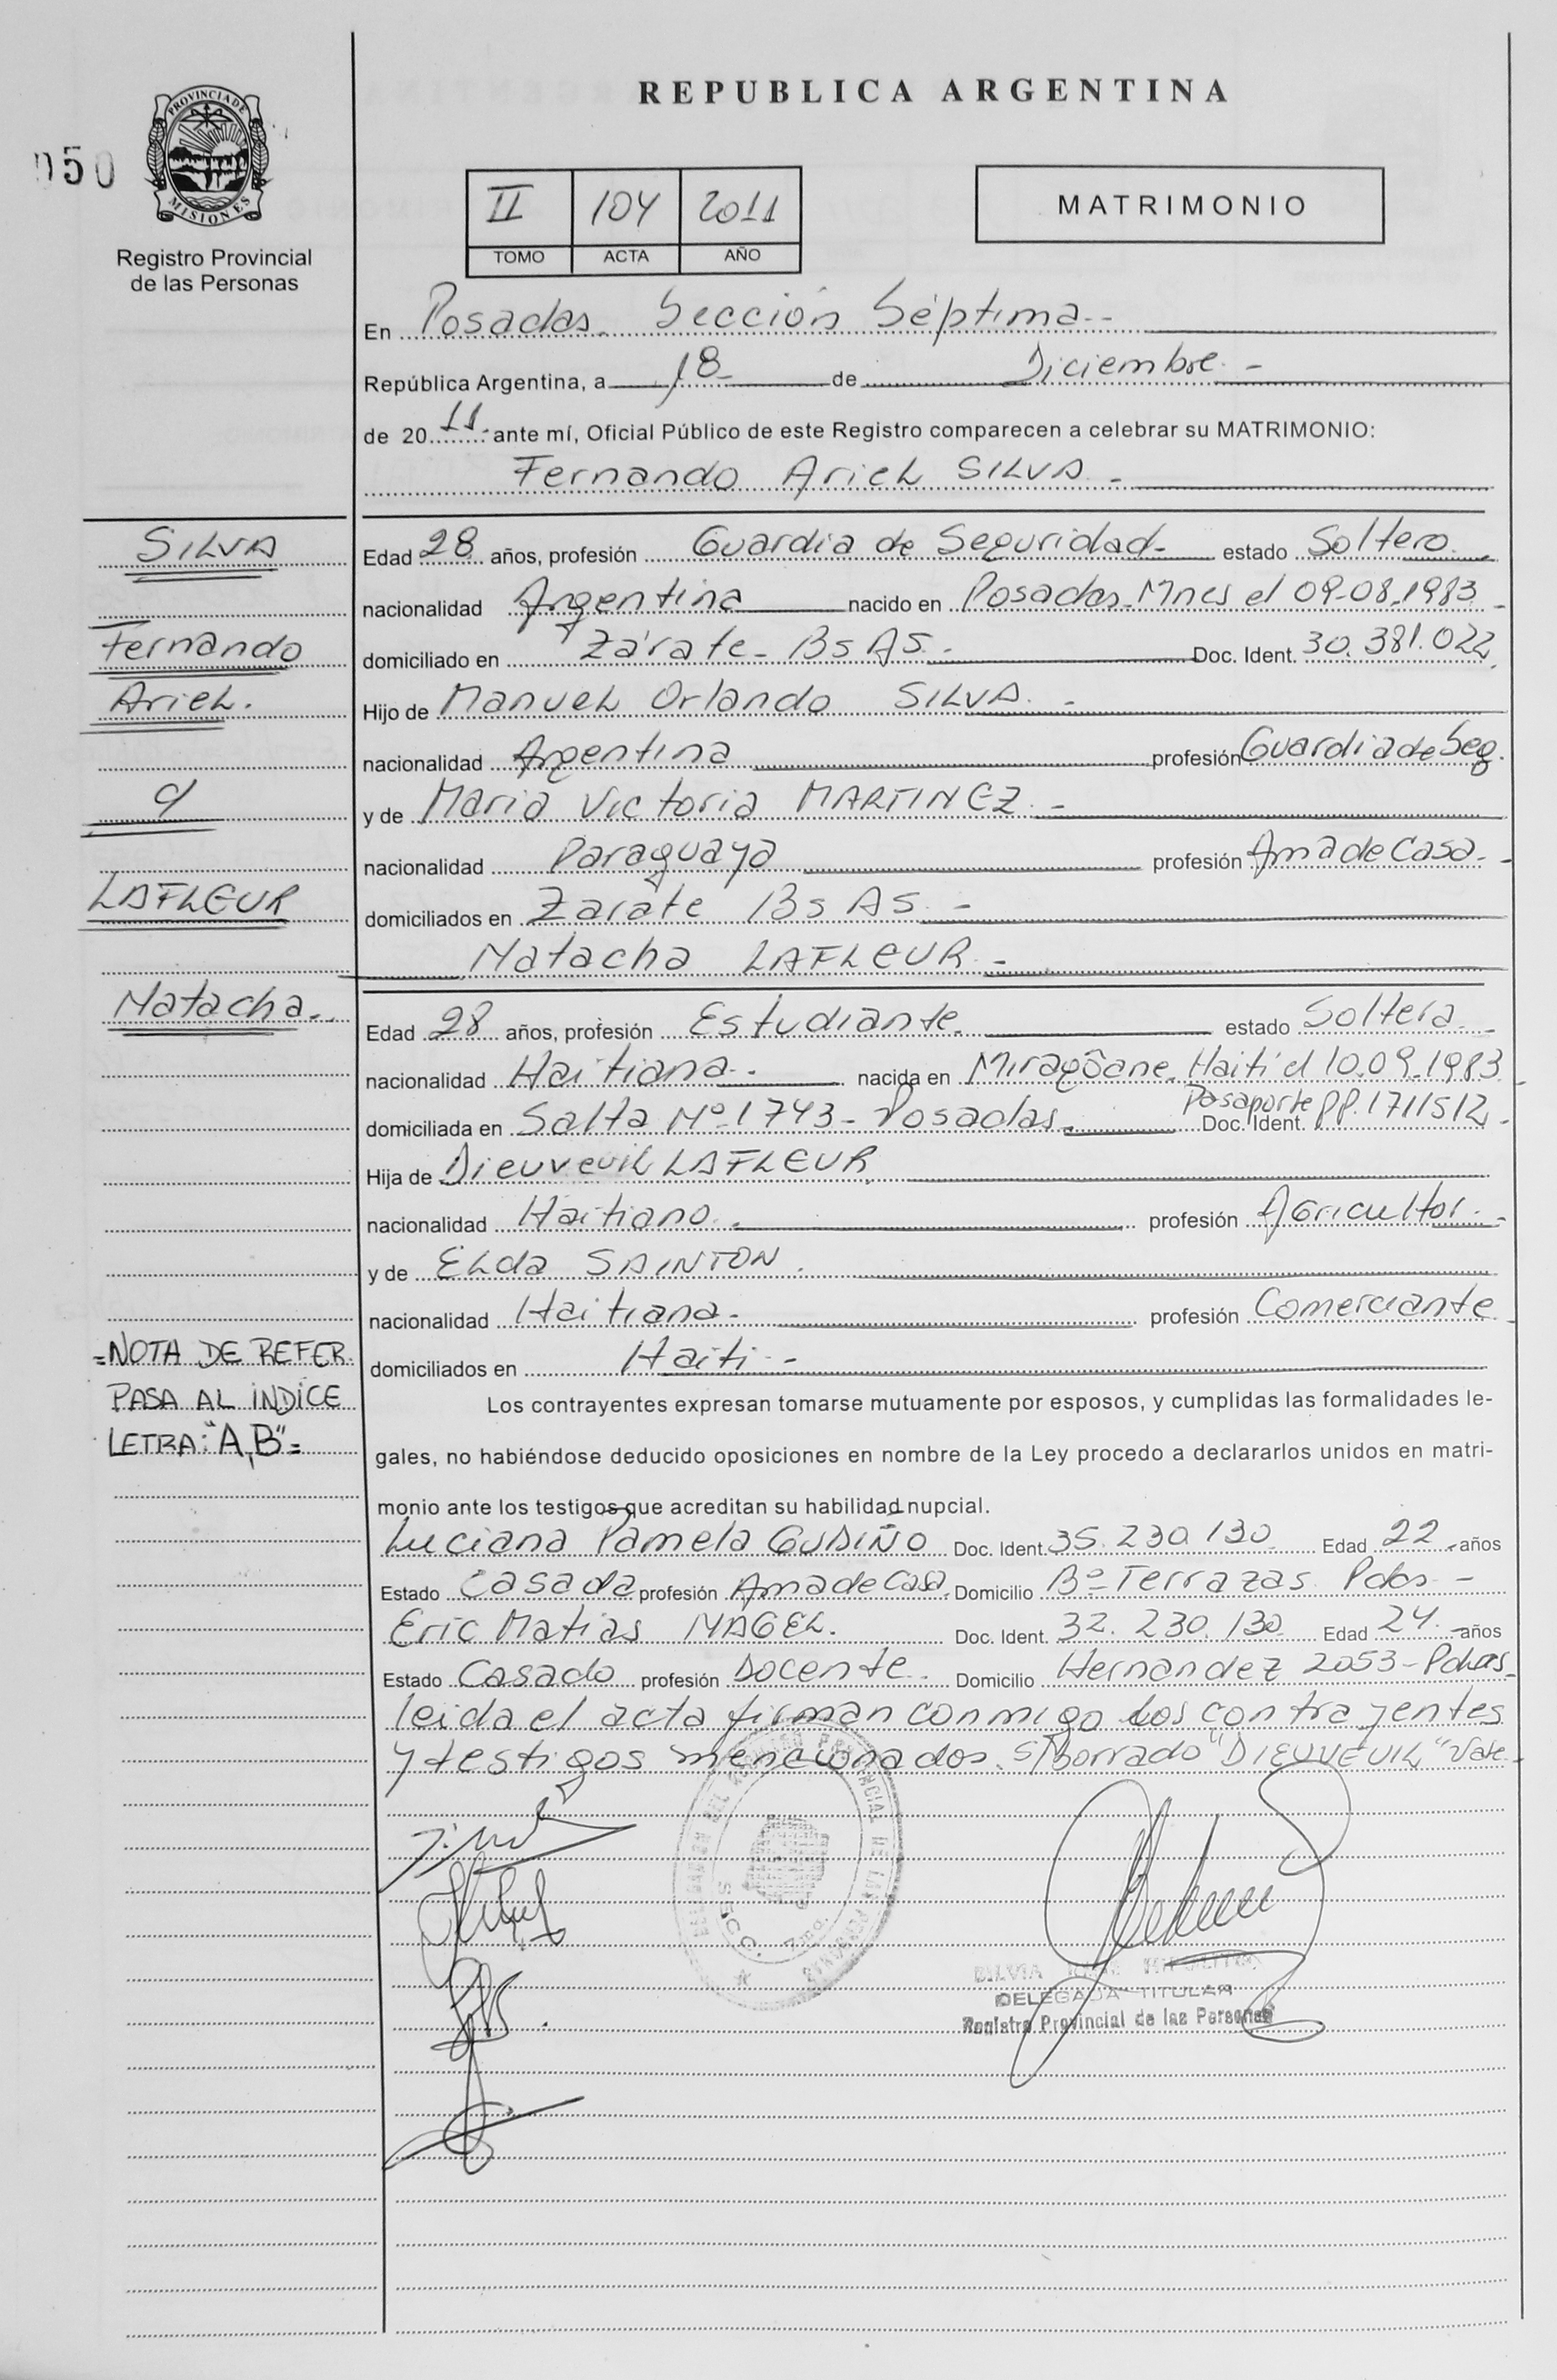 REPUBLICA ARGENTINA
050
PROVINCIA DE
MISIONES
Registro Provincial
de las Personas
II 104 2011
TOMO ACTA AÑO
MATRIMONIO
En Posadas. Sección Séptima.-
República Argentina, a 18- de Diciembre.-
de 20 11.- ante mí, Oficial Público de este Registro comparecen a celebrar su MATRIMONIO:
Fernando Ariel SILVA.-
SILVA
Fernando
Ariel.
LAFLEUR
Natacha.
=NOTA DE REFER.
PASA AL INDICE
LETRA: "A,B"=
Edad 28 años, profesión Guardia de Seguridad- estado Soltero.
nacionalidad Argentina nacido en Posadas-Mnes el 09-08-1983-
domiciliado en Zárate- Bs AS.- Doc. Ident. 30.381.022.
Hijo de Manuel Orlando SILVA.-
nacionalidad Argentina profesión Guardia de Seg.
y de Maria Victoria MARTINEZ.-
nacionalidad Paraguaya profesión Ama de Casa.-
domiciliados en Zarate Bs AS.-
Natacha LAFLEUR.-
Edad 28 años, profesión Estudiante. estado Soltera.-
nacionalidad Haitiana.- nacida en Miragôane. Haití el 10.09.1983-
domiciliada en Salta Nº 1743- Posadas. Doc. Ident. Pasaporte PP.1711512.-
Hija de Dieuveuil LAFLEUR
nacionalidad Haitiano. profesión Agricultor.-
y de Elda SAINTON.
nacionalidad Haitiana- profesión Comerciante
domiciliados en Haiti.-
Los contrayentes expresan tomarse mutuamente por esposos, y cumplidas las formalidades le-
gales, no habiéndose deducido oposiciones en nombre de la Ley procedo a declararlos unidos en matri-
monio ante los testigos que acreditan su habilidad nupcial.
Luciana Pamela GUDIÑO Doc. Ident. 35.230.130. Edad 22 años
Estado Casada profesión Ama de Casa. Domicilio Bº Terrazas Pdas-
Eric Matias NAGEL. Doc. Ident. 32.230.130 Edad 24.- años
Estado Casado profesión Docente. Domicilio Hernandez 2053-Pdas-
leida el acta firman conmigo los contrayentes
y testigos mencionados. S/Borrado "DIEUVEUIL" Vale.-
DELEGADA TITULAR
Registro Provincial de las Personas